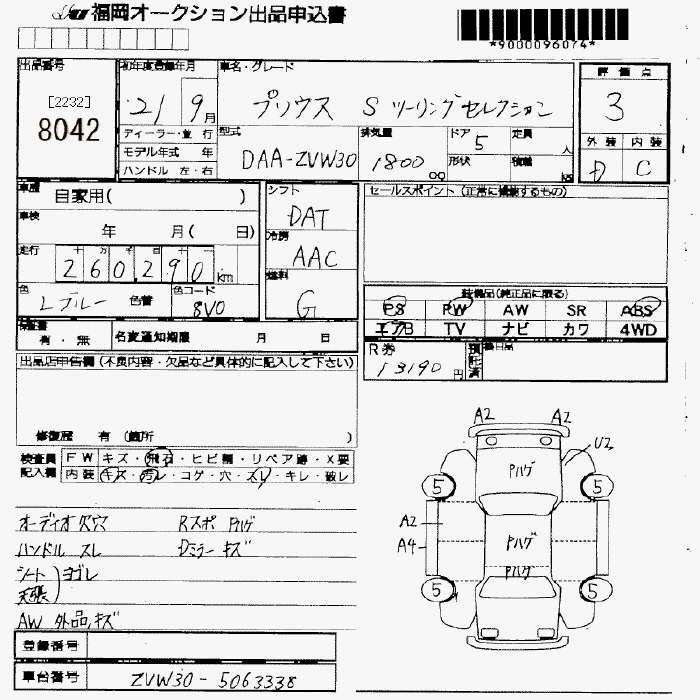 福岡オークション出品申込書
*9000096074*
出品番号
[2232]
8042
初年度登録年月
21 9月
ディーラー・並行
モデル年式 年
ハンドル 左・右
車名・グレード
プリウス Sツーリングセレクション
型式
DAA-ZVW30
排気量
1800
cc
ドア
5
形状
定員
人
積載
KG
評価点
3
外装 内装
D C
車歴
自家用( )
車検
年 月( 日)
走行
十 万 千 百 十 一
260290 km
色
Lブルー 色替
色コード
8V0
シフト
DAT
冷房
AAC
燃料
G
セールスポイント (正常に機能するもの)
装備品(純正品に限る)
PS PW AW SR ABS
エアB TV ナビ カワ 4WD
保証書
有・無
名変通知期限 月 日
R券
13190円
預託済
後日品
出品店申告欄 (不良内容・欠品など具体的に記入して下さい)
修復歴 有 (箇所 )
検査員
記入欄
FW キズ・飛石・ヒビ割・リペア跡・X要
内装 キズ・汚レ・コゲ・穴・スレ・キレ・破レ
オーディオ欠穴 Rスポ Pハゲ
ハンドル スレ Dミラー キズ
シート
天張 ヨゴレ
AW 外品,キズ
登録番号
車台番号 ZVW30-5063338
A2 A2
U2
Pハゲ
5 5
A2
A4
Pハゲ
Pハゲ
5 5